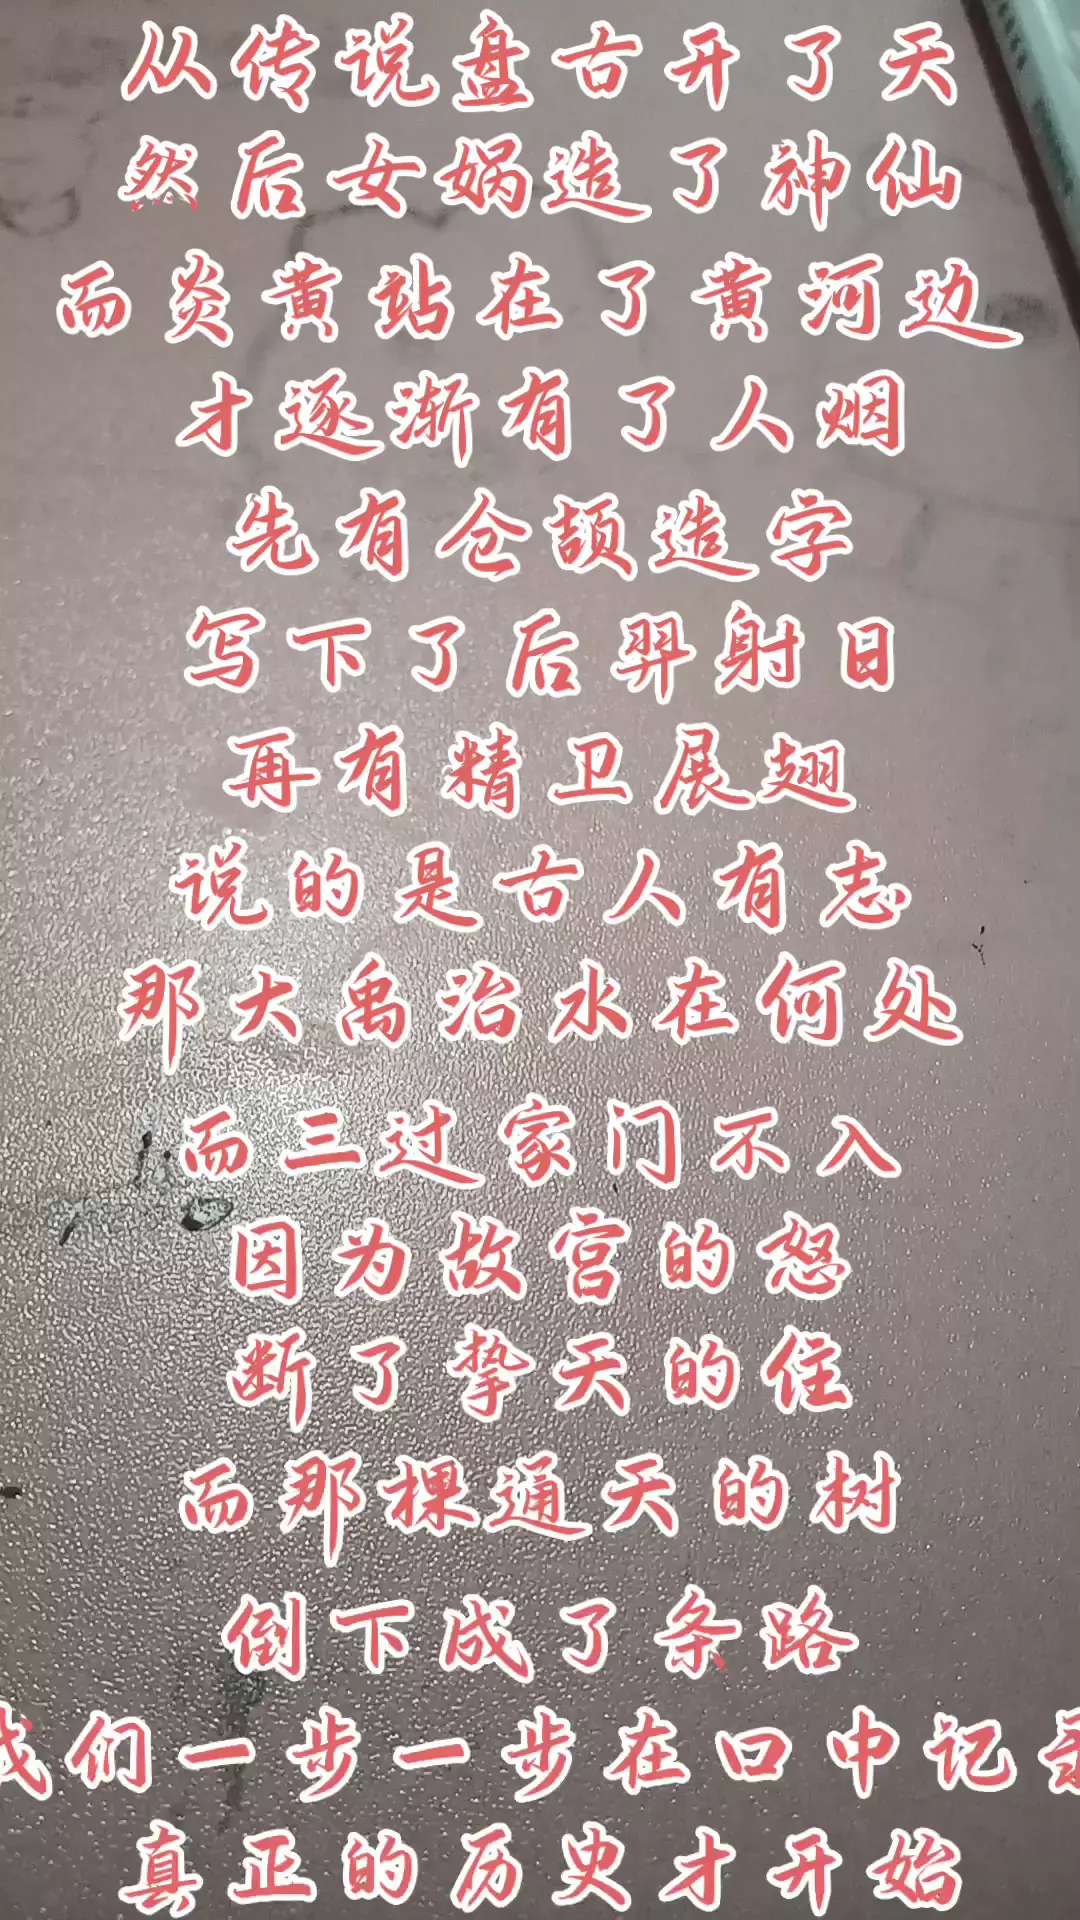 从传说盘古开了天
然后女娲造了神仙
而炎黄站在了黄河边
才逐渐有了人烟
先有仓颉造字
写下了后羿射日
再有精卫展翅
说的是古人有志
那大禹治水在何处
而三过家门不入
因为故宫的怒
断了挚天的住
而那棵通天的树
倒下成了条路
我们一步一步在口中记录
真正的历史才开始